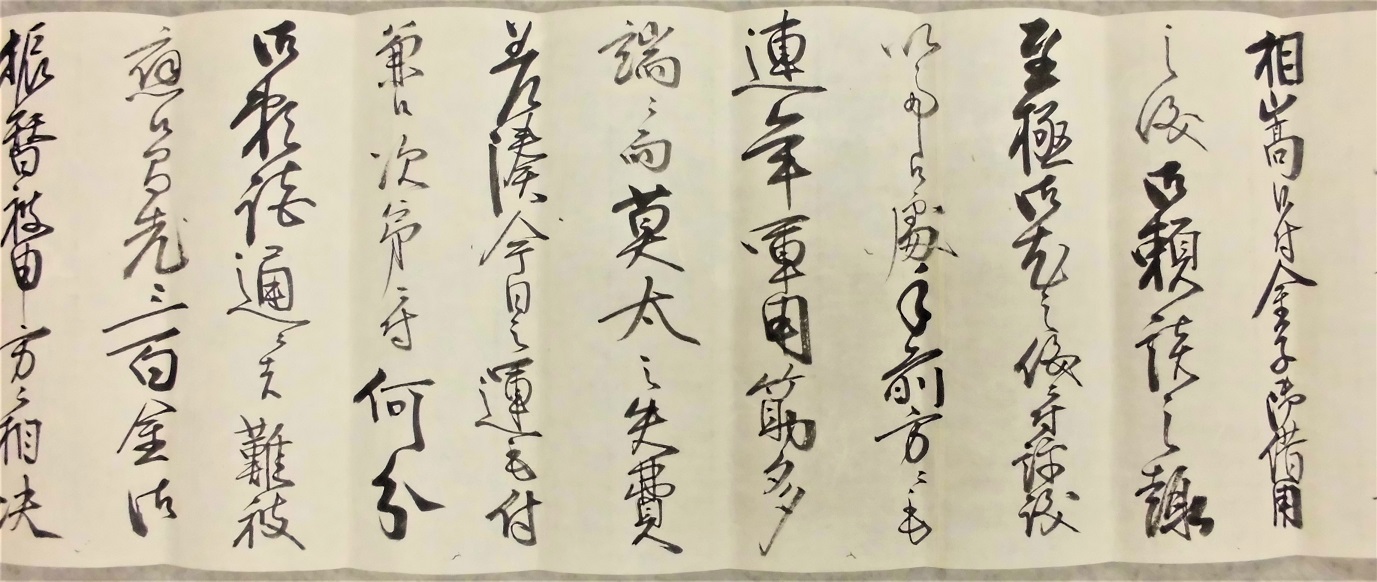 相嵩候付金子御借用
之儀御頼談之趣
至極御尤之儀付
候処手前方ニも
連年軍用筋多
端ニ而莫太之失費
差湊今日之運も付
兼候次第ニ付何分
御頼談通ニ者難被
応候得共先三百金御
振替被申方ニ相決